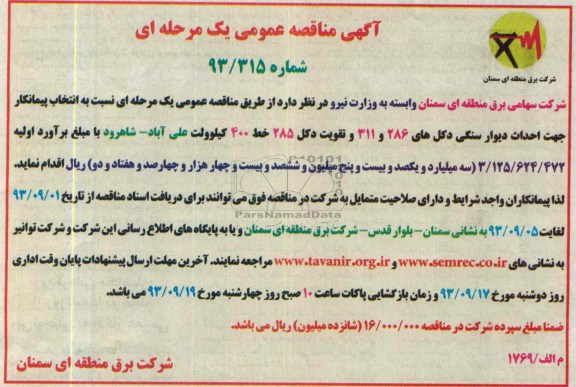 آگهی مناقصه عمومی یک مرحله ای
شماره ۹۳/۳۱۵
شرکت برق منطقه ای سمنان
شرکت سهامی برق منطقه ای سمنان وابسته به وزارت نیرو در نظر دارد از طریق مناقصه عمومی یک مرحله ای نسبت به انتخاب پیمانکار
جهت احداث دیوار سنگی دکل های ۲۸۶ و ۳۱۱ و تقویت دکل ۲۸۵ خط ۴۰۰ کیلوولت علی آباد- شاهرود با مبلغ برآورد اولیه
۳/۱۲۵/۶۲۴/۴۷۲ (سه میلیارد و یکصد و بیست و پنج میلیون و ششصد و بیست و چهار هزار و چهارصد و هفتاد و دو) ریال اقدام نماید.
لذا پیمانکاران واجد شرایط و دارای صلاحیت متمایل به شرکت در مناقصه فوق می توانند برای دریافت اسناد مناقصه از تاریخ ۹۳/۰۹/۰۱
لغایت ۹۳/۰۹/۰۵ به نشانی سمنان - بلوار قدس - شرکت برق منطقه ای سمنان و یا به پایگاه های اطلاع رسانی این شرکت و شرکت توانیر
به نشانی های www.semrec.co.ir و www.tavanir.org.ir مراجعه نمایند. آخرین مهلت ارسال پیشنهادات پایان وقت اداری
روز دوشنبه مورخ ۹۳/۰۹/۱۷ و زمان بازگشایی پاکات ساعت ۱۰ صبح روز چهارشنبه مورخ ۹۳/۰۹/۱۹ می باشد.
ضمنا مبلغ سپرده شرکت در مناقصه ۱۶/۰۰۰/۰۰۰ (شانزده میلیون) ریال می باشد.
م الف/۱۷۶۹
شرکت برق منطقه ای سمنان
ParsNamadData